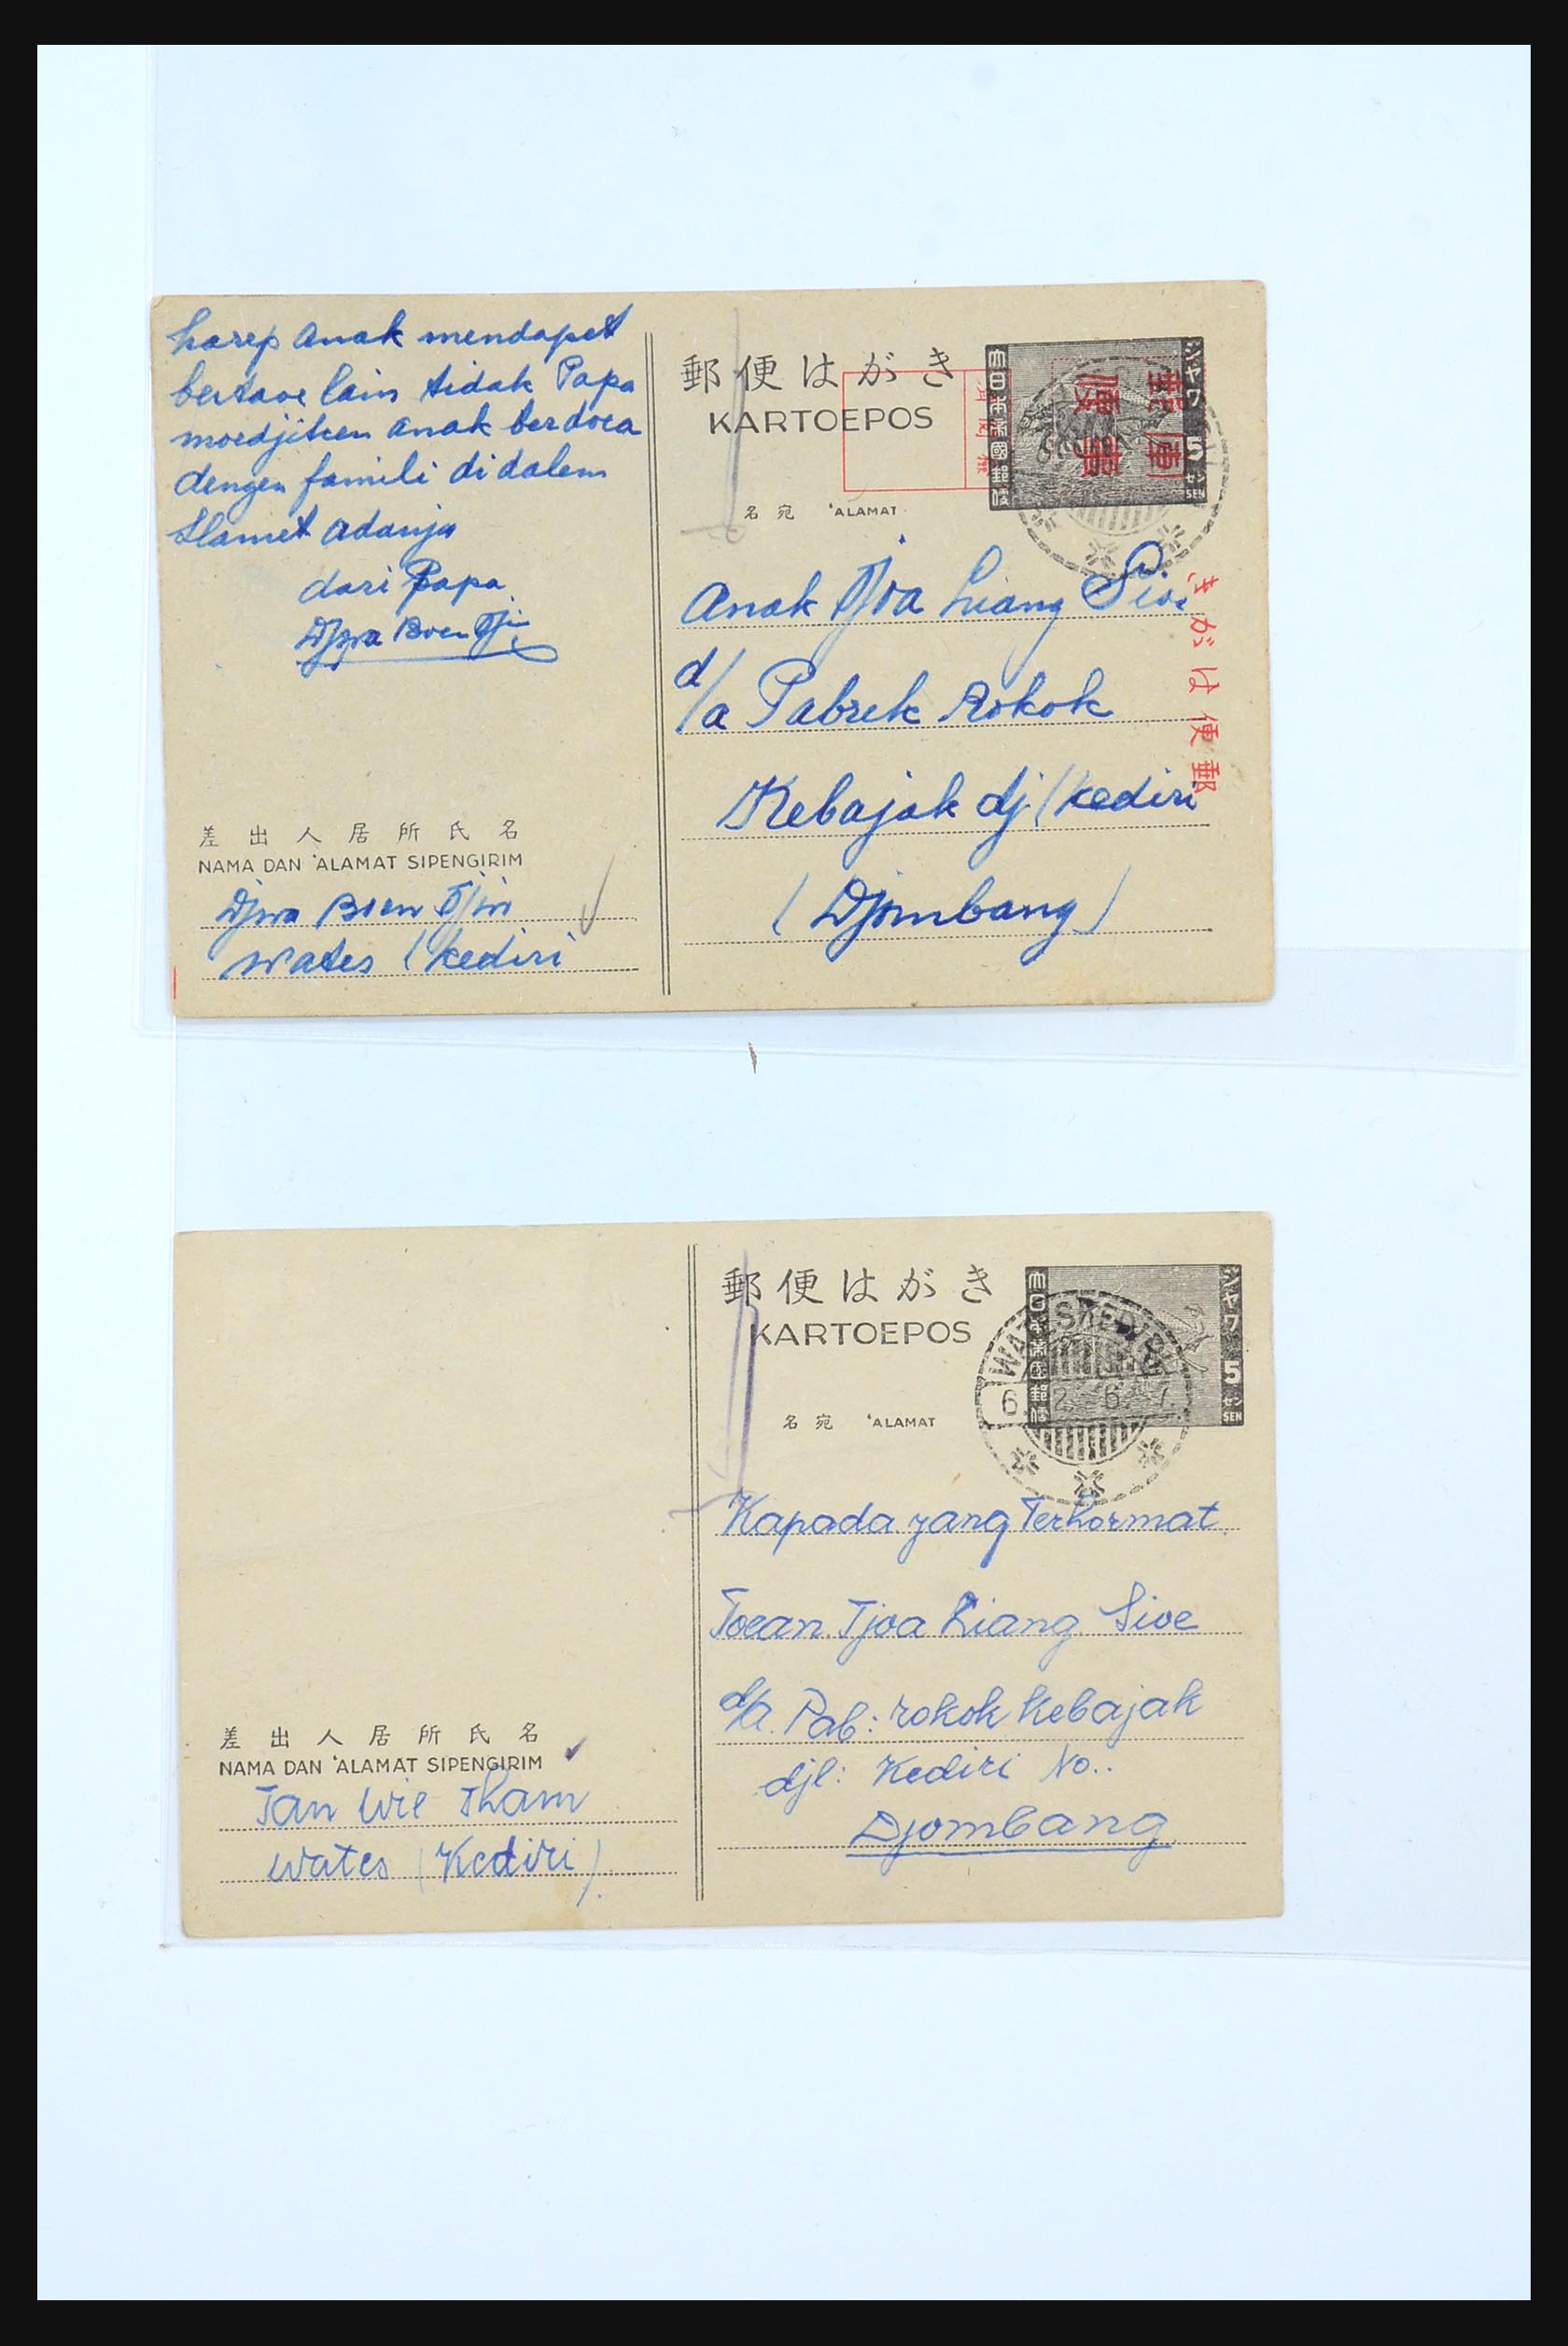 harep anak mendapet
bertaoe lain tidak Papa
moedjiken anak berdoea
dengen famili di dalem
slamet adanja
dari Papa
差出人居所氏名
NAMA DAN 'ALAMAT SIPENGIRIM
Wates (Kediri
郵便はがき
KARTOEPOS
名宛 'ALAMAT
大日本帝國郵便
ジャワ 5 セン SEN
軍事
郵便はがき
Anak Tjoa Liang Sioe
d/a Pabrek Rokok
Kebajak dj/Kediri
(Djombang)
差出人居所氏名
NAMA DAN 'ALAMAT SIPENGIRIM
Tan Wie Tham
Wates (Kediri)
郵便はがき
KARTOEPOS
名宛 'ALAMAT
大日本帝國郵便
ジャワ 5 セン SEN
WATES KEDIRI
6. 2. 6. 7.
Kapada yang Terhormat
Toean Tjoa Liang Sioe
d/a. Pab: rokok Kebajak
djl: Kediri No..
Djombang